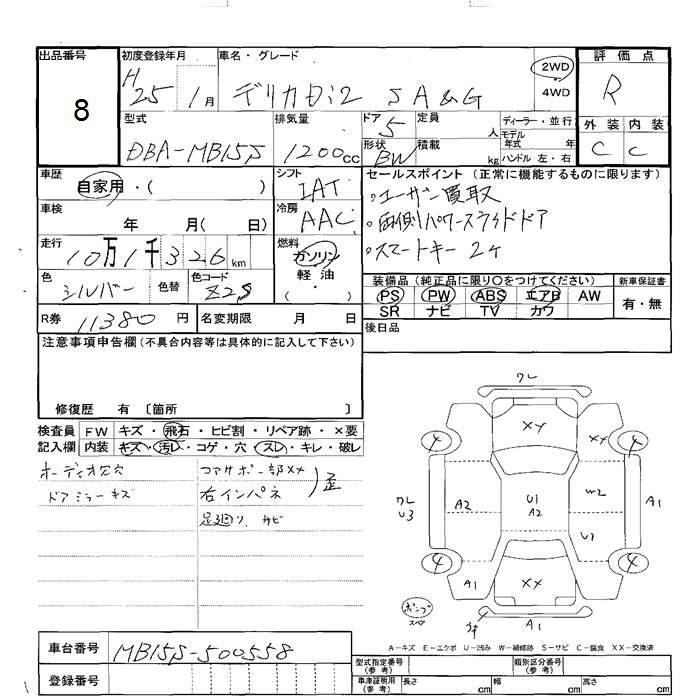 出品番号 初度登録年月 車名・グレード 2WD 4WD 評価点
8 H25 1月 デリカD:2 S A&G R
外装 内装
C C
型式 排気量 ドア 定員 人 ディーラー・並行
DBA-MB15S 1200cc 5 形状 BW 積載 kg モデル年式 年 ハンドル 左・右
車歴 自家用・( ) シフト IAT セールスポイント (正常に機能するものに限ります)
。ユーザー買取
車検 年 月( 日) 冷房 AAC 。両側パワースライドドア
走行 10万1千326km 燃料 ガソリン 軽油 ( ・ ) 。スマートキー 2ケ
色 シルバー 色替 色コード Z2S 装備品 (純正品に限り〇をつけてください) 新車保証書
PS PW ABS エアB AW 有・無
SR ナビ TV カワ
R券 11380円 名変期限 月 日 後日品
注意事項申告欄(不具合内容等は具体的に記入して下さい)
修復歴 有 〔箇所 〕
検査員 FW キズ・飛石・ヒビ割・リペア跡・×要
記入欄 内装 キズ・汚レ・コゲ・穴・スレ・キレ・破レ
オーディオ欠 コアサポ一部XX
ドアミラーキズ 右インパネ 歪
足廻リ サビ
ワレ
XY
4 XX 4
ワレ U3 A2 U1 A2 W2 A1
U2
4 4
A1 XX
ポンプ スペア A1
A-キズ E-エクボ U-凹み W-補修跡 S-サビ C-腐食 XX-交換済
車台番号 MB15S-500558
登録番号
型式指定番号(参考) 類別区分番号(参考)
車庫証明用(参考) 長さ cm 幅 cm 高さ cm